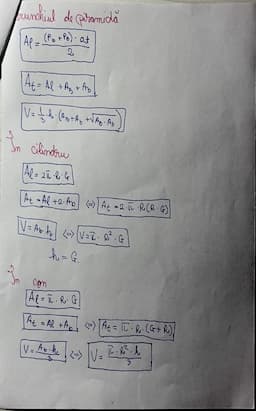 trunchiul de piramidă
Al = (PB + Pb) · at / 2
At = Al + AB + Ab
V = 1/3 h · (AB + Ab + √AB · Ab)
În cilindru
Al = 2π · R · G
At = Al + 2 · Ab <=> At = 2 · π · R(R · G)
V = Ab · h <=> V = π · R² · G
h = G
În con
Al = π · R · G
At = Al + Ab <=> At = π · R · (G + R)
V = Ab · h / 3 <=> V = π · R² · h / 3